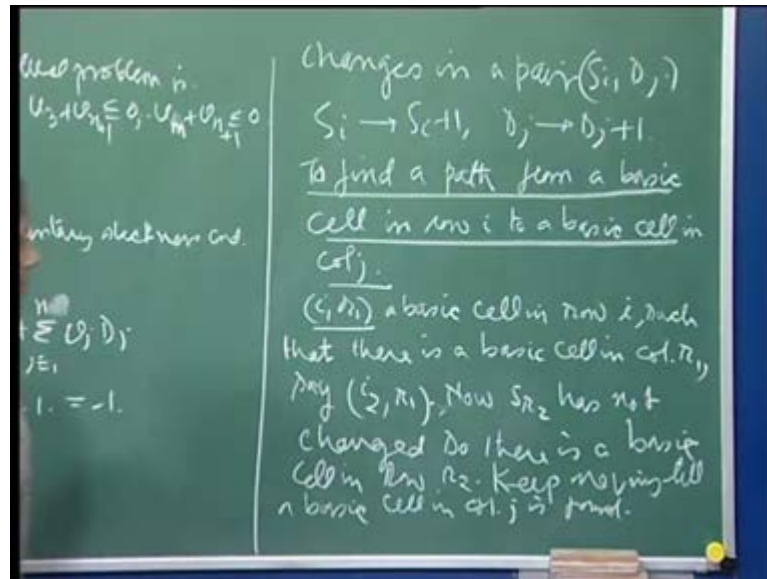 problem is.
U₃+V_{n+1} ≤ 0, U_m+V_{n+1} ≤ 0
slackness cond.
n
+ Σ V_j D_j
j=1
1. = -1.
Changes in a pair (S_i, D_j)
S_i → S_i+1, D_j → D_j+1.
To find a path from a basic
cell in row i to a basic cell in
col j.
(i, r_1) a basic cell in row i, such
that there is a basic cell in col. r_1,
say (i_2, r_1), Now S_{r_2} has not
changed so there is a basic
cell in row r_2. Keep moving till
a basic cell in col. j is found.